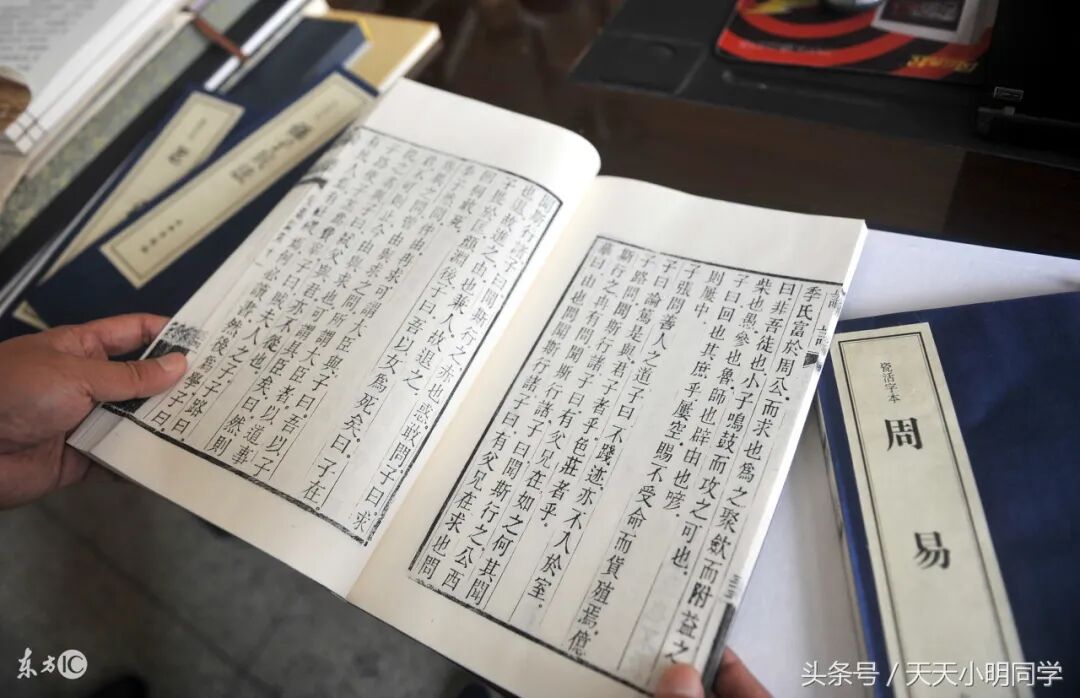 季氏富於周公而求也為之聚斂而附益之
曰非吾徒也小子鳴鼓而攻之可也
柴也愚參也魯師也辟由也喭
子曰回也其庶乎屢空賜不受命而貨殖焉億
則屢中
子張問善人之道子曰不踐迹亦不入於室
子曰論篤是與君子者乎色莊者乎
子路問聞斯行諸子曰有父兄在如之何其聞
斯行之冉有問聞斯行諸子曰聞斯行之公西
華曰由也問聞斯行諸子曰有父兄在求也問
聞斯行諸子曰聞斯行之赤也惑敢問子曰求
也退故進之由也兼人故退之
子畏於匡顏淵後子曰吾以女為死矣曰子在
回何敢死
季子然問仲由冉求可謂大臣與子曰吾以子
為異之問曾由與求之問所謂大臣者以道事
君不可則止今由與求也可謂具臣矣曰然則
從之者與子曰弒父與君亦不從也
子路使子羔為費宰子曰賊夫人之子子路曰
有民人焉有社稷焉何必讀書然後為學子曰
瓷活字本
周易
东方IC
头条号 / 天天小明同学